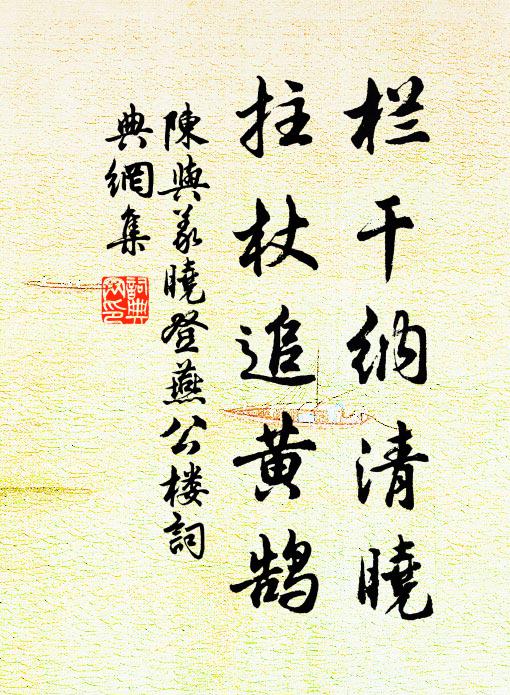 栏干纳清晓
拄杖追黄鹄
陳與義曉登燕公楼詞
典網集
詞典